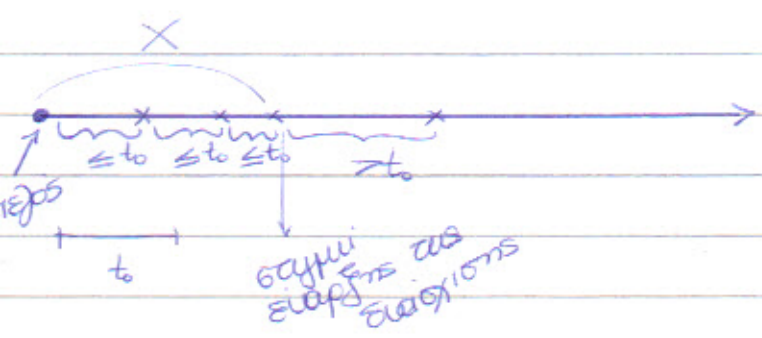 X
≤t₀ ≤t₀ ≤t₀ >t₀
t₀
στιγμή
έναρξης της
διάσχισης